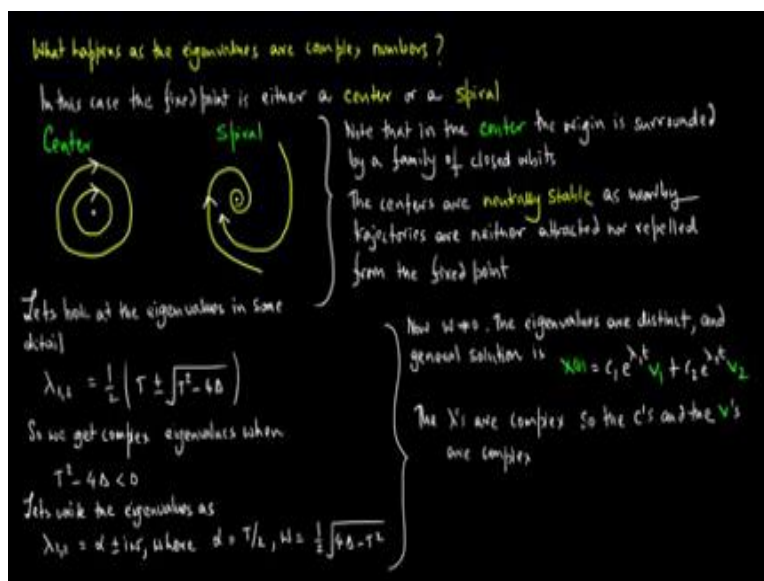 What happens as the eigenvalues are complex numbers?
In this case the fixed point is either a center or a spiral
Center
Spiral
Note that in the center the origin is surrounded
by a family of closed orbits
The centers are neutrally stable as nearby
trajectories are neither attracted nor repelled
from the fixed point
Lets look at the eigenvalues in some
detail
λ₁,₂ = 1/2 (τ ± √(τ² - 4Δ))
So we get complex eigenvalues when
τ² - 4Δ < 0
Lets write the eigenvalues as
λ₁,₂ = α ± iω, where α = τ/2, ω = 1/2 √(4Δ - τ²)
Now ω ≠ 0. The eigenvalues are distinct, and
general solution is x(t) = c₁e^λ₁t v₁ + c₂e^λ₂t v₂
The λ's are complex so the c's and the v's
are complex